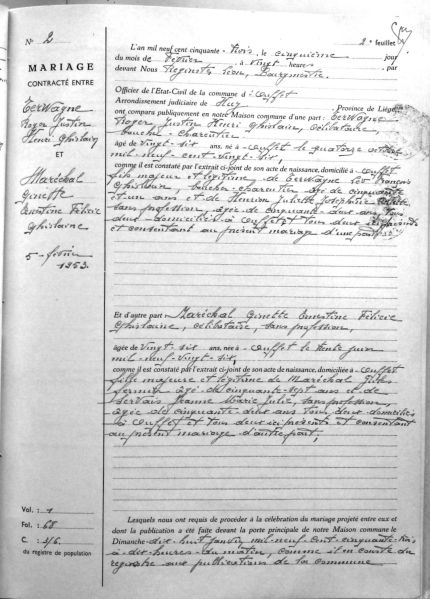 N° 2
2e feuillet
MARIAGE
CONTRACTÉ ENTRE
Terwagne
Roger Justin
Henri Ghislain
ET
Maréchal
Ginette
Ernestine Félicie
Ghislaine
5 - février
1953.
L'an mil neuf cent cinquante - trois, le cinquième jour
du mois de février à vingt heures
devant Nous Léon, Bourgmestre. , par
Officier de l'Etat-Civil de la commune d'Ouffet
Arrondissement judiciaire de Huy Province de Liège
ont comparu publiquement en notre Maison commune d'une part : Terwagne
Roger, Justin Henri Ghislain, célibataire,
boucher - charcutier
âgé de vingt-six ans, né à Ouffet le quatorze
mil-neuf-cent-vingt-six,
comme il est constaté par l'extrait ci-joint de son acte de naissance, domicilié à Ouffet
fils majeur et légitime de Terwagne Léo François
Ghislain, boucher-charcutier âgé de cinquante
et un ans et de Henrion Juliette Joséphine
sans profession, âgée de cinquante-deux ans tous
deux domiciliés à Ouffet et tous deux
et consentant au présent mariage d'une part,
Et d'autre part : Maréchal Ginette Ernestine Félicie
Ghislaine, célibataire, sans profession,
âgée de vingt-six ans, née à Ouffet le trente juin
mil-neuf-vingt-six,
comme il est constaté par l'extrait ci-joint de son acte de naissance, domiciliée à Ouffet
fille majeure et légitime de Maréchal
Fermier âgé de cinquante-sept ans et de
Servais Jeanne Marie Julie, sans profession,
âgée de cinquante-deux ans tous deux domiciliés
à Ouffet et tous deux ici présents et consentant
au présent mariage d'autre part,
Vol. : 1
Fol. : 68
C. : 3/6.
du registre de population
Lesquels nous ont requis de procéder à la célébration du mariage projeté entre eux et
dont la publication a été faite devant la porte principale de notre Maison commune le
Dimanche dix-huit janvier mil-neuf-cent-cinquante-trois
à dix-heures du matin, comme il en conste du
registre aux publications de la commune